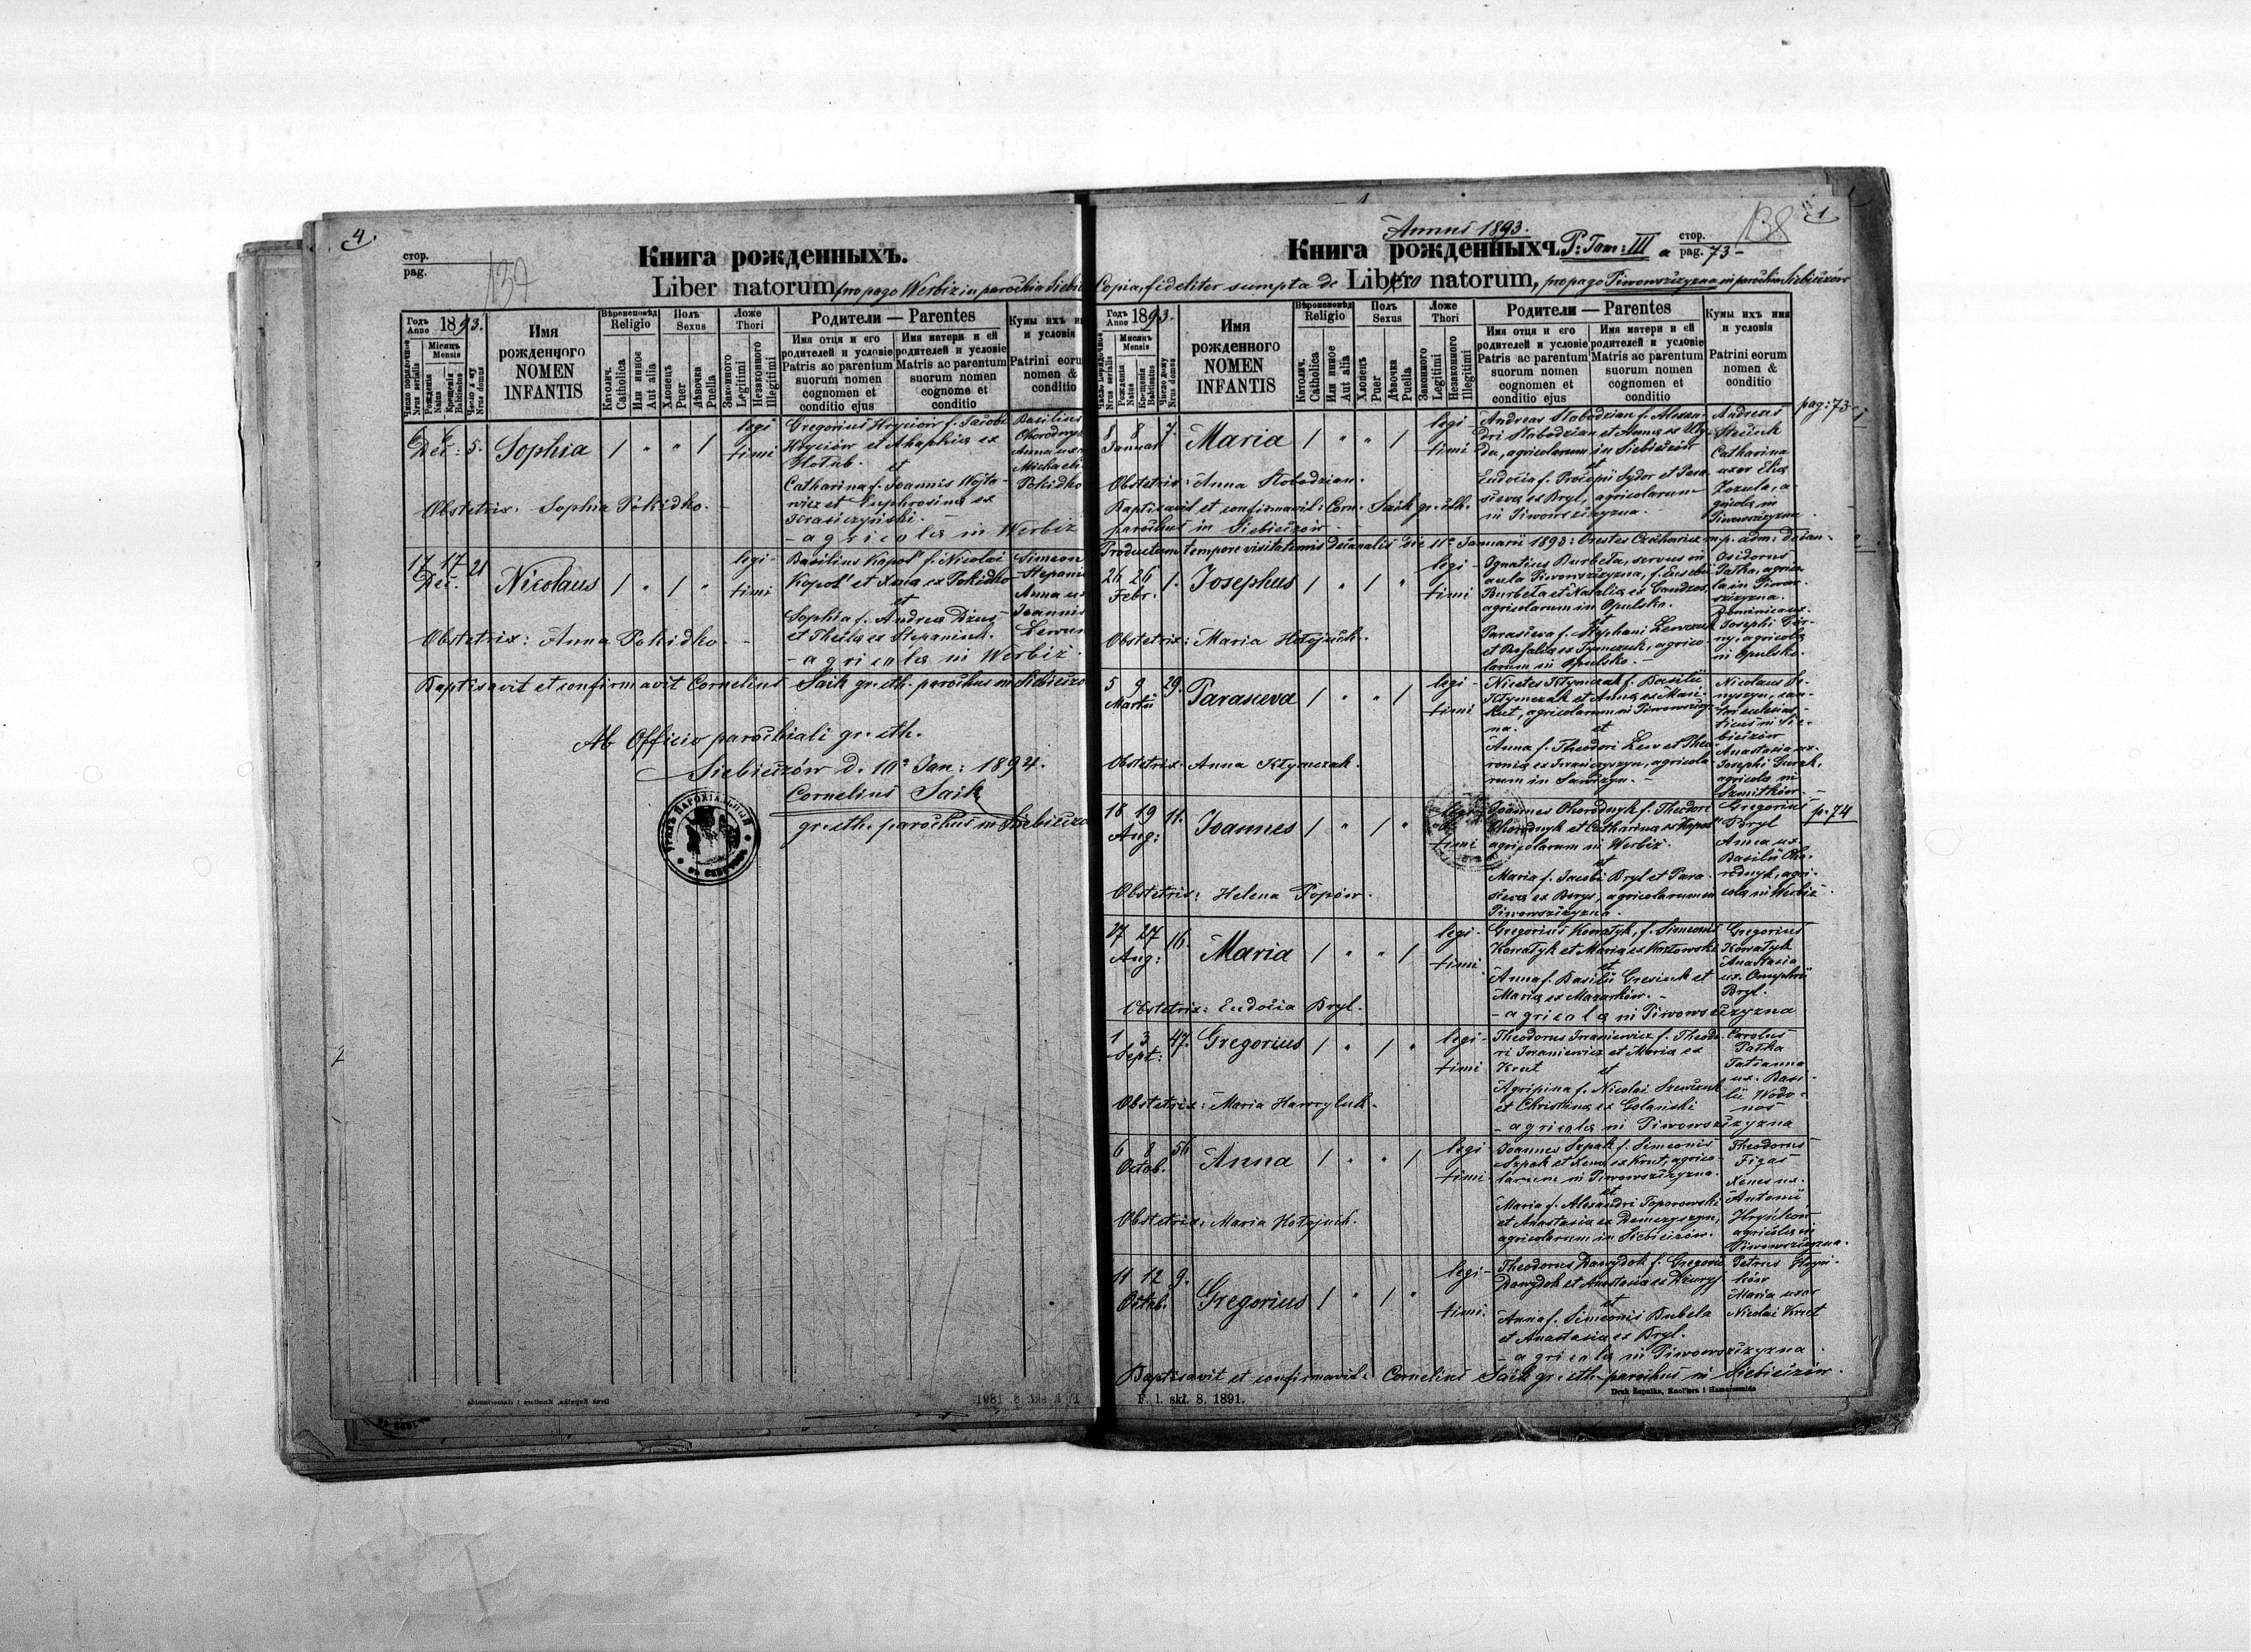 4.
стор.
pag.
137
Книга рожденныхъ.
Liber natorum, pro pago Werbiz in parochia Siebie
Годъ Anno 1893.
Число порядочное Nrus serialis
Мѣсяцъ Mensis
Рожденія Natus
Крещенія Babtisatus
Число дому Nrus domus
Имя рожденного NOMEN INFANTIS
Вѣроисповѣд Religio
Католич. Catholica
Или инное Aut alia
Полъ Sexus
Хлопецъ Puer
Дѣвочка Puella
Ложе Thori
Законного Legitimi
Незаконного Illegitimi
Родители — Parentes
Имя отця и его родителей и условіе
Patris ac parentum suorum nomen cognomen et conditio ejus
Имя матери и ей родителей и условіе
Matris ac parentum suorum nomen cognome et conditio
Кумы ихъ и
и условія
Patrini eoru
nomen &
conditio
6 6 Dec: 5. Sophia / " " / legi timi
Gregorius Hryciów f. Jacobi
Hryciów et Ahaphia ex
Hołub.
et
Catharina f. Joannis Wojta-
wicz et Euphrosina ex
Krasiczyński.
- agricola in Werbiz
Basilius
Ohorodnyk
Anna ux
Michaeli
Pokidko
Obstetrix: Sophia Pokidko.
17 17 Dec. 21 Nicolaus / " / " legi- timi
Basilius Kapoł f. Nicolai
Kopoł et Xenia ex Pokidko
et
Sophia f. Andrea Dzius
et Thecla ex Stepaniuk.
- agricola in Werbiż.
Simeon
Stepani
Anna ux
Joannis
Lewun
Obstetrix: Anna Pokidko.
Baptisavit et confirmavit Cornelius Saik gr. cth. parochus in Siebieczo
Ab Officio parochiali gr. cth.
Siebieczów d. 10ª Jan: 1894.
Cornelius Saik
gr. cth. parochus in Siebieczo
Annus 1893.
138
1
Книга рожденныхъ. P: Tom: III a
стор.
pag. 73-
Copia, fideliter sumpta de Libro natorum, pro pago Piwowszczyzna in parochia Siebieczów
Годъ Anno 1893.
Число порядочное Nrus serialis
Мѣсяцъ Mensis
Рожденія Natus
Крещенія Babtisatus
Число дому Nrus domus
Имя рожденного NOMEN INFANTIS
Вѣроисповѣд Religio
Католич. Catholica
Или инное Aut alia
Полъ Sexus
Хлопецъ Puer
Дѣвочка Puella
Ложе Thori
Законного Legitimi
Незаконного Illegitimi
Родители — Parentes
Имя отця и его родителей и условіе
Patris ac parentum suorum nomen cognomen et conditio ejus
Имя матери и ей родителей и условіе
Matris ac parentum suorum nomen cognomen et conditio
Кумы ихъ имя
и условія
Patrini eorum
nomen &
conditio
pag: 73
8 8 Januar 7. Maria / " " / legi- timi
Andreas Słobodzian f. Alexan-
dri Słobodzian et Anna ex
agricolarum in Siebieczów
et
Eudocia f. Procopii Sydor et Para-
sceva ex Bryl, agricolarum
in Piwowszczyzna.
Andreas
Catharina
uxor Elia
Zozula, a-
gricola in
Piwowszczyzna
Obstetrix: Anna Słobodzian.
Baptisavit et confirmavit: Corn. Saik gr. cth.
parochus in Siebieczów
Productum tempore visitationis decanalis die 11ª Januarii 1893: Orestes mp. adm: decan-
26 26 Febr. 1. Josephus / " / " legi- timi
Ignatius Burbeła, servus in
aula Piwowszczyzna, f. Eusebii
Burbeła et Natalia ex
agricolarum in Opulsko.
et
Parasceva f. Stephani Lewczuk
et Rosalia ex Tymczuk, agrico-
larum in Opulsko.
Isidorus
Patka, agrico-
la in Piwow-
szczyzna.
Dominica ux.
Josephi Gór-
ny, agricola
in Opulsko.
Obstetrix: Maria Hołojuch.
5 9 Martii 29. Parasceva / " " / legi- timi
Nicetas Kłymczak f. Basilii
Kłymczak et Anna ex
agricolarum in Piwowszczyz-
na.
et
Anna f. Theodori Lew et Theo-
ronia ex Iwaniczyszyn, agricola-
rum in Sawczyn.
Nicolaus
can-
tor ecclesias-
ticus in Sie-
bieczów
Anastasia ux.
Josephi
agricola in
Szmitków.
Obstetrix: Anna Kłymczak.
18 19 Aug: 11. Joannes / " / " legi- timi
Joannes Ohorodnyk f. Theodori
Ohorodnyk et Catharina ex Kapoł
agricolarum in Werbiz.
et
Maria f. Jacobi Bryl et Para-
sceva ex Borys, agricolarum in
Piwowszczyzna.
Gregorius
Bryl
Anna ux.
Basilii Oho-
rodnyk, agri-
cola in Werbiż.
p. 74
Obstetrix: Helena Popów.
27 27 Aug: 16. Maria / " " / legi- timi
Gregorius Kowałyk, f. Simeonis
Kowałyk et Maria ex Kozłowski
et
Anna f. Basilii Gresiuk et
Maria ex Mazarków.
- agricola in Piwowszczyzna
Gregorius
Kowałyk
Anastasia
ux. Onuphrii
Bryl.
Obstetrix: Eudocia Bryl.
1 3 Sept: 47. Gregorius / " / " legi- timi
Theodorus Iwaniewicz f. Theodo-
ri Iwaniewicz et Maria ex
Krut
et
Agripina f. Nicolai Szewczuk
et Christina ex Golański
- agricola in Piwowszczyzna
Carolus
Patka
Tatianna
ux. Basi-
lii Wodo-
nos
Obstetrix: Maria Hawryluk.
6 8 Octob. 56 Anna / " " / legi- timi
Joannes Szpak f. Simeonis
Szpak et Xenia ex Krut, agrico-
larum in Piwowszczyzna.
et
Maria f. Alexandri Toporowski
et Anastasia ex Demczyszyn,
agricolarum in Siebieczów.
Theodorus
Figas
Xenia ux.
Antonii
Hryńków
agricola in
Piwowszczyzna.
Obstetrix: Maria Hołojuch.
11 12 Octob. 9. Gregorius / " / " legi- timi
Theodorus Dawydok f. Gregorii
Dawydok et Anastasia ex
et
Anna f. Simeonis Bubela
et Anastasia ex Bryl.
- agricola in Piwowszczyzna.
Petrus Hryń-
ków
Maria uxor
Nicolai Krut
Baptisavit et confirmavit: Cornelius Saik gr. cth. parochus in Siebieczów.
F. l. skł. 8. 1891.